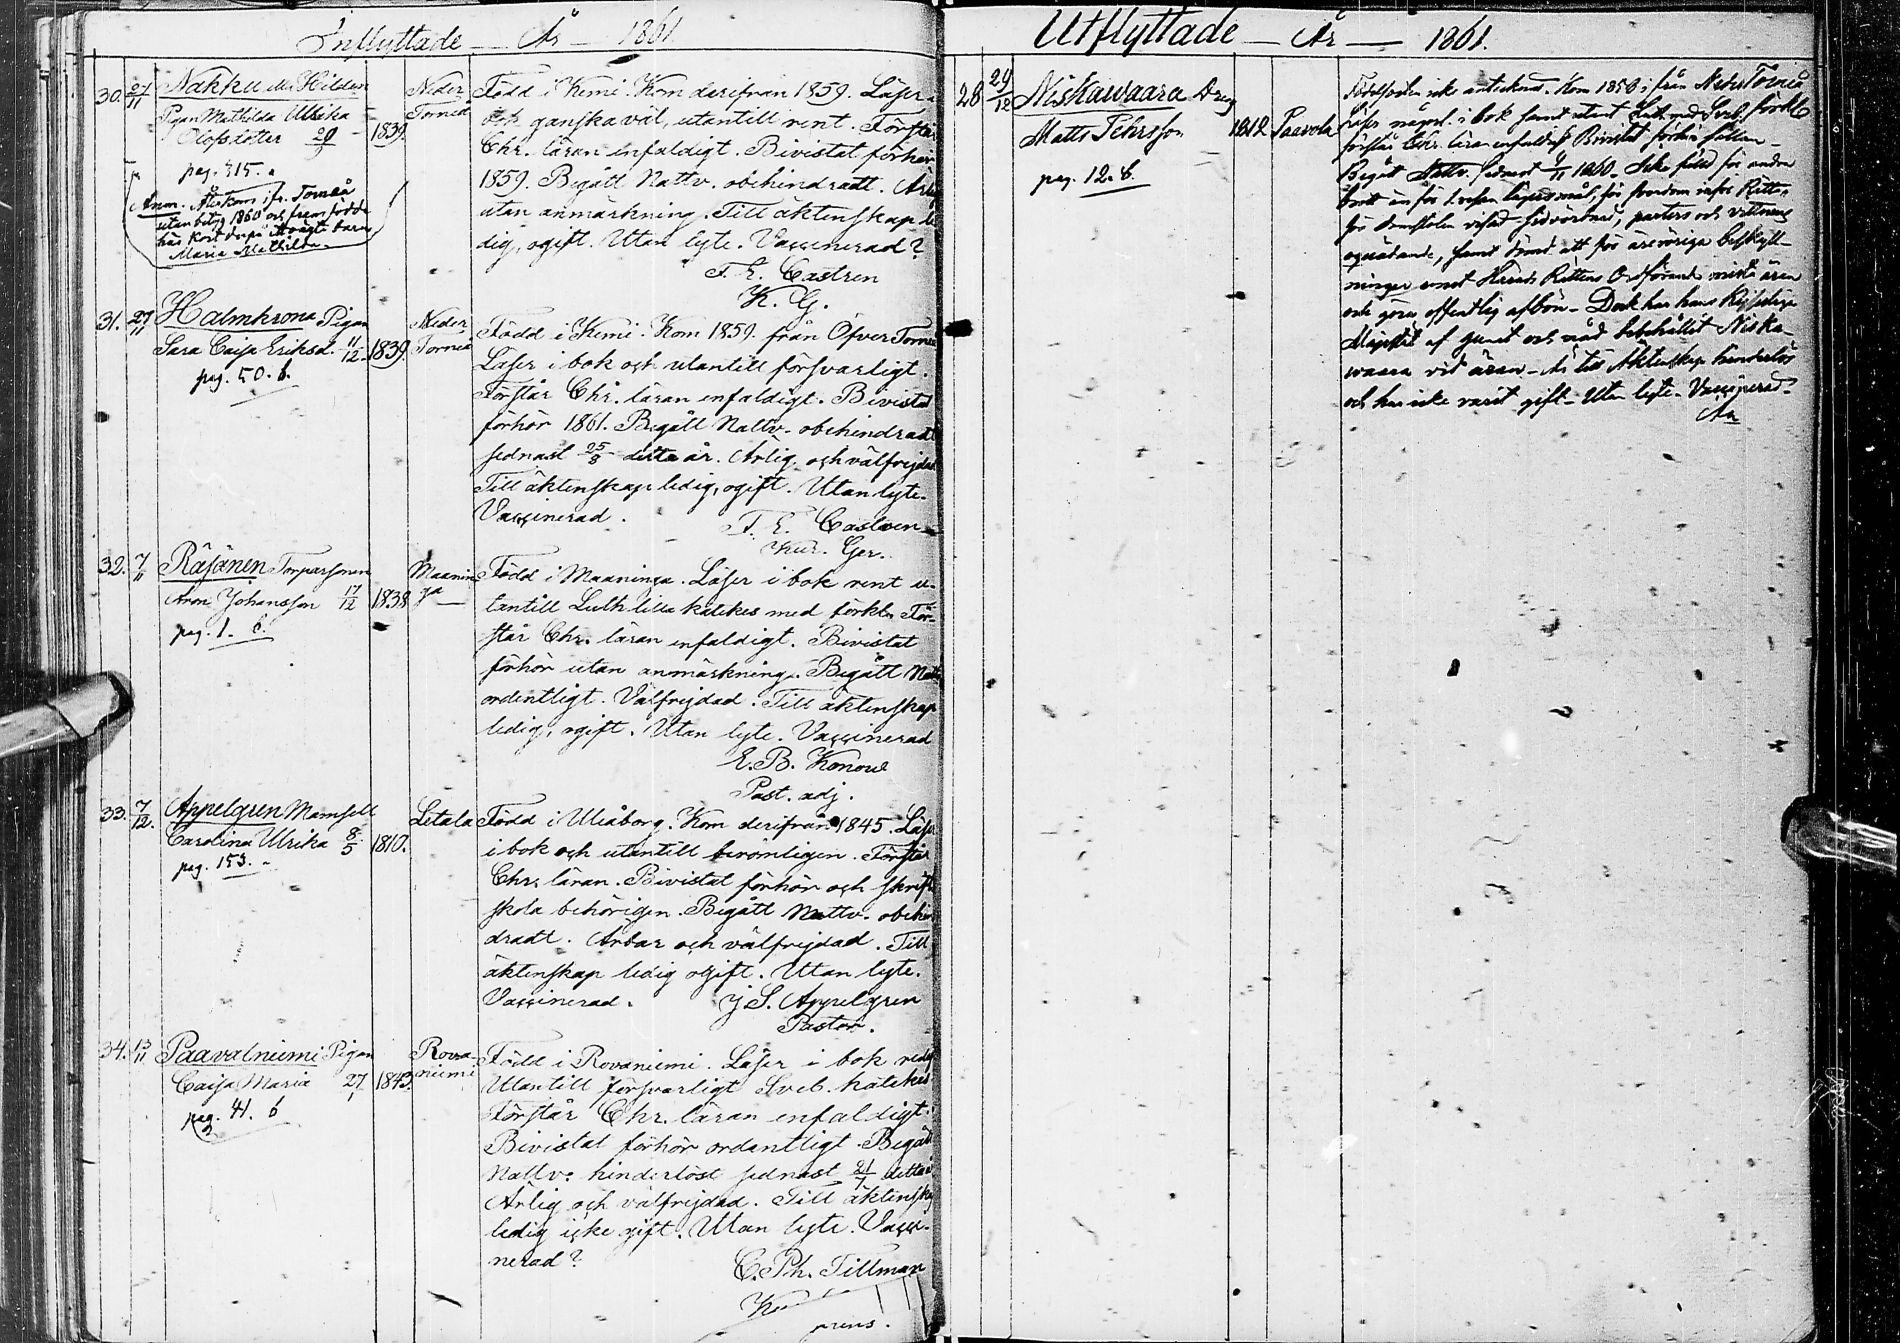 Inflyttade — År — 1861
30. 27/11 Nakku eller Hilden
Pigan Mathilda Ulrika
Olofsdotter 29/9 1839.
pag. 315.
Anm. Återkom ifr. Torneå
utan betyg 1860 och framfödde
här kort derpå oäkta barn
Maria Mathilda.
Neder
Torneå
Född i Kemi. Kom derifrån 1859. Läser i
bok ganska väl, utantill rent. Förstår
Chr. läran enfaldigt. Bivistat förhör
1859. Begått Nattv. obehindradt. Ärlig
utan anmärkning. Till äktenskap le-
dig, ogift. Utan lyte. Vaccinerad?
F. E. Castren
K. G.
31. 27/11 Halmkrona Pigan
Sara Caisa Eriksd. 11/12 1839.
pag. 50. b.
Neder
Torneå
Född i Kemi. Kom 1859. från Öfver Torneå
Läser i bok och utantill försvarligt.
Förstår Chr. läran enfaldigt. Bivistat
förhör 1861. Begått Nattv. obehindradt
sednast 25/8 detta år. Ärlig och välfrejdad
Till äktenskap ledig, ogift. Utan lyte.
Vaccinerad.
F. E. Castren
Kur. Ger.
32. 7/11 Räsänen Torparsonen
Aron Johansson 17/12 1838
pag. 1. b.
Maanin
ga
Född i Maaninga. Läser i bok rent u-
tantill Luth. lilla katekes med förkl. För-
står Chr. läran enfaldigt. Bivistat
förhör utan anmärkning. Begått Nattv.
ordentligt. Välfrejdad. Till äktenskap
ledig, ogift. Utan lyte. Vaccinerad
E. B. Konow
Past. adj.
33. 7/12. Appelgren Mamsell
Carolina Ulrika 8/5 1810.
pag. 153.
Letala
Född i Uleåborg. Kom derifrån 1845. Läser
i bok och utantill berömligen. Förstår
Chr. läran. Bivistat förhör och skrift
skola behörigen. Begått Nattv. obehin
dradt. Ärbar och välfrejdad. Till
äktenskap ledig ogift. Utan lyte.
Vaccinerad.
J. S. Appelgren
Pastor.
34. 13/11 Paavalniemi Pigan
Caisa Maria 27/1 1843.
pag. 41. b
Rova-
niemi
Född i Rovaniemi. Läser i bok redigt
Utantill försvarligt Sveb. katekes
Förstår Chr. läran enfaldigt.
Bivistat förhör ordentligt. Begått
Nattv. hinderlöst sednast 21/7 detta år
Ärlig och välfrejdad. Till äktenskap
ledig icke gift. Utan lyte. Vacci-
nerad?
C. Ph. Tillman
Utflyttade — År — 1861.
28 29/12 Niskawaara Dreng
Matts Pehrsson 1812 Paavola
pag. 12. b.
Födelseorten icke antecknad. Kom 1850 ifrån Neder Torneå
Läser något i bok samt utant. Luth. med Sveb. förkl.
förstår Chr. läran enfaldigt Bivistat förhör sällan.
Begått Nattv. sednast 4/11 1860.
och göra offentlig afbön. Dock har Hans Kejserliga
Majestät af gunst och nåd bibehållit Niska-
waara vid äran. Är till äktenskap hinderlös
och har icke varit gift. Utan lyte. Vaccinerad.